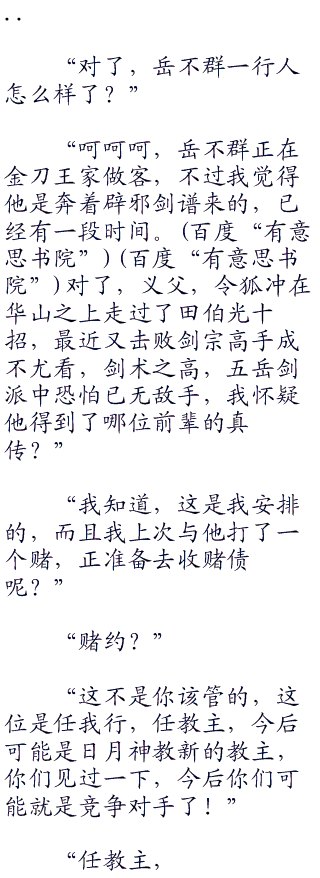 ..
“对了，岳不群一行人
怎么样了？”
“呵呵呵，岳不群正在
金刀王家做客，不过我觉得
他是奔着辟邪剑谱来的，已
经有一段时间。(百度“有意
思书院”)(百度“有意思书
院”)对了，义父，令狐冲在
华山之上走过了田伯光十
招，最近又击败剑宗高手成
不尤看，剑术之高，五岳剑
派中恐怕已无敌手，我怀疑
他得到了哪位前辈的真
传？”
“我知道，这是我安排
的，而且我上次与他打了一
个赌，正准备去收赌债
呢？”
“赌约？”
“这不是你该管的，这
位是任我行，任教主，今后
可能是日月神教新的教主，
你们见过一下，今后你们可
能就是竞争对手了！”
“任教主，